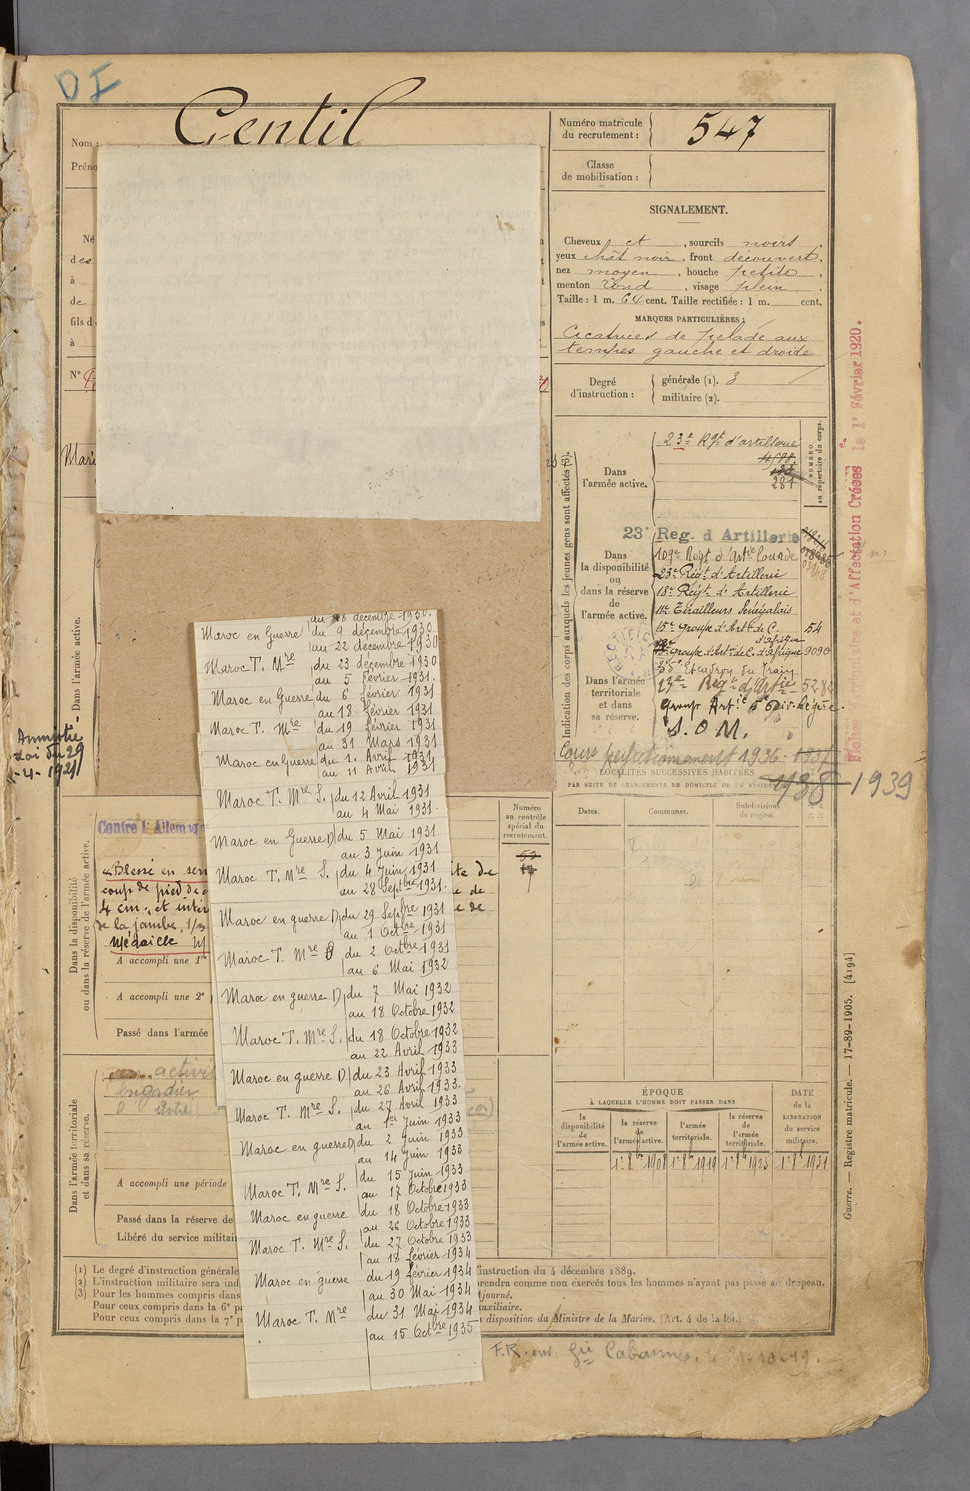 DI
Gentil
Nom :
Préno
Né
des
à
de
fils d
à
N°
Mari
Numéro matricule
du recrutement :
547
Classe
de mobilisation :
SIGNALEMENT.
Cheveux et , sourcils noirs .
yeux chât noir , front découvert ,
nez moyen , bouche petite ,
menton rond , visage plein .
Taille : 1 m. 64 cent. Taille rectifiée : 1 m. cent.
MARQUES PARTICULIÈRES :
Cicatrices de pelade aux
tempes gauche et droite
Degré
d'instruction :
générale (1). 3
militaire (2).
Indication des corps auxquels les jeunes gens sont affectés (3).
NUMÉRO
au répertoire du corps.
Dans
l'armée active.
23e Rgt d'artillerie
281
Dans
la disponibilité
ou
dans la réserve
de
l'armée active.
23e Reg. d Artillerie
109e Regt d'Artie lourde
23e Régt d'Artillerie
18e Régt d'Artillerie
Tirailleurs Sénégalais
15e Groupe d'Art. de C. 54
d'afrique
Groupe d'Art. de C. d'afrique 9090
Escadron du Train
Dans l'armée
territoriale
et dans
sa réserve.
S.O.M.
Cours perfectionnement 1936 - 1937
1938 1939
LOCALITÉS SUCCESSIVES HABITÉES
PAR SUITE DE CHANGEMENTS DE DOMICILE OU DE RÉSIDENCE.
Dates.
Communes.
Subdivisions
de région.
ÉPOQUE
À LAQUELLE L'HOMME DOIT PASSER DANS
la
disponibilité
de
l'armée active.
la réserve
de
l'armée active.
l'armée
territoriale.
la réserve
de
l'armée
territoriale.
DATE
de la
LIBÉRATION
du service
militaire.
1r 8e 1908
1r 8e 1919
1r 8e 1925
1r 8e 1931
et d'Affectation Créées le 1r Février 1920.
Guerre. — Registre matricule. — 17-89-1905. [4194]
Dans l'armée active.
Amnistie
Loi du 29
-4-1921
Dans la disponibilité
ou dans la réserve de l'armée active.
Contre l'Allemagne
Numéro
au contrôle
spécial du
recrutement.
Blessé en
coup de pied de
4 cm., et
de la jambe,
Médaille
A accompli une 1re
A accompli une 2e
Passé dans l'armée
Dans l'armée territoriale
et dans sa réserve.
brigadier
A accompli une période
Passé dans la réserve de
Libéré du service militai
au 8 décembre 1930.
Maroc en Guerre du 9 décembre 1930
au 22 décembre 1930
Maroc T. Mre du 23 décembre 1930
au 5 Février 1931.
Maroc en Guerre du 6 février 1931
au 18 février 1931
Maroc T. Mre du 19 février 1931
au 31 Mars 1931
Maroc en Guerre du 1. Avril 1931
au 11 Avril 1931
Maroc T. Mre S. du 12 Avril 1931
au 4 Mai 1931.
Maroc en Guerre D du 5 Mai 1931
au 3 Juin 1931
Maroc T. Mre S. du 4 Juin 1931
au 28 Septbre 1931.
Maroc en guerre D du 29 Septbre 1931
au 1 Octbre 1931
Maroc T. Mre S du 2 Octbre 1931
au 6 Mai 1932
Maroc en guerre D du 7 Mai 1932
au 18 Octobre 1932
Maroc T. Mre S. du 18 Octobre 1932
au 22 Avril 1933
Maroc en guerre D du 23 Avril 1933
au 26 Avril 1933.
Maroc T. Mre S. du 27 Avril 1933
au 1er Juin 1933
Maroc en guerre D du 2 Juin 1933
au 14 Juin 1933
Maroc T. Mre S. du 15 Juin 1933
au 17 Octobre 1933
Maroc en guerre du 18 Octobre 1933
au 26 Octobre 1933
Maroc T. Mre S. du 27 Octobre 1933
au 18 février 1934
Maroc en guerre du 19 février 1934
au 30 Mai 1934
Maroc T. Mre du 31 Mai 1934
au 15 Octbre 1935
(1) Le degré d'instruction générale instruction du 4 décembre 1889.
(2) L'instruction militaire sera ind prendra comme non exercés tous les hommes n'ayant pas passé au drapeau.
(3) Pour les hommes compris dans journé.
Pour ceux compris dans la 6e p auxiliaire.
Pour ceux compris dans la 7e p disposition du Ministre de la Marine. (Art. 4 de la loi.)
F.R.